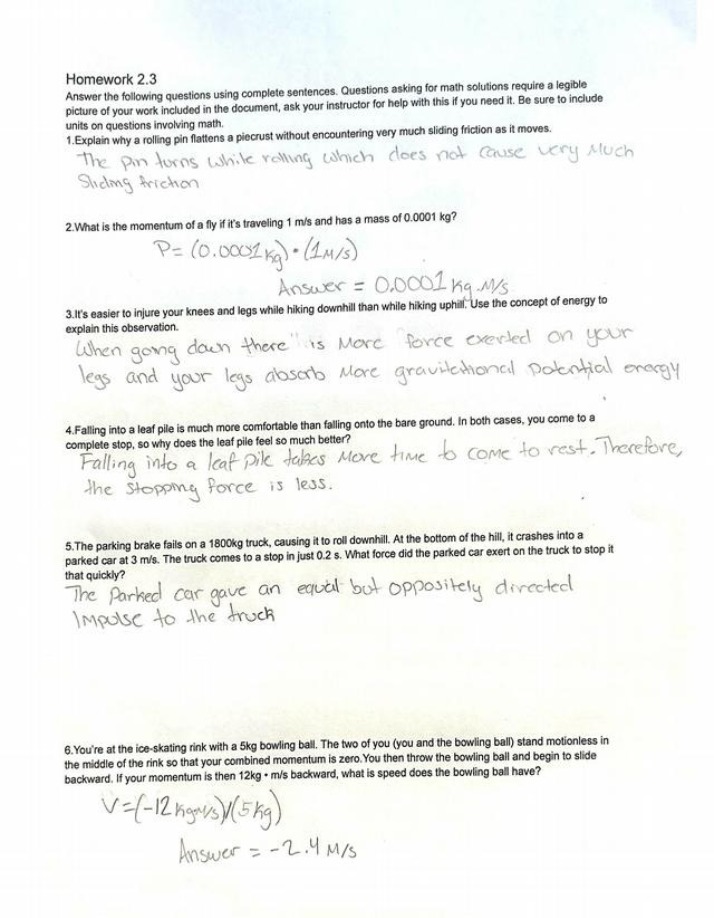 Homework 2.3
Answer the following questions using complete sentences. Questions asking for math solutions require a legible
picture of your work included in the document, ask your instructor for help with this if you need it. Be sure to include
units on questions involving math.
1.Explain why a rolling pin flattens a piecrust without encountering very much sliding friction as it moves.
The pin turns while rolling which does not cause very Much
Sliding friction
2.What is the momentum of a fly if it's traveling 1 m/s and has a mass of 0.0001 kg?
P= (0.0001 kg) • (1 M/s)
Answer = 0.0001 kg.M/s
3.It's easier to injure your knees and legs while hiking downhill than while hiking uphill. Use the concept of energy to
explain this observation.
When going down there" is More "force exerted on your
legs and your legs absorb More gravitational potential energy
4.Falling into a leaf pile is much more comfortable than falling onto the bare ground. In both cases, you come to a
complete stop, so why does the leaf pile feel so much better?
Falling into a leaf pile takes More time to come to rest. Therefore,
the stopping force is less.
5.The parking brake fails on a 1800kg truck, causing it to roll downhill. At the bottom of the hill, it crashes into a
parked car at 3 m/s. The truck comes to a stop in just 0.2 s. What force did the parked car exert on the truck to stop it
that quickly?
The Parked car gave an equal but oppositely directed
IMpulse to the truck
6.You're at the ice-skating rink with a 5kg bowling ball. The two of you (you and the bowling ball) stand motionless in
the middle of the rink so that your combined momentum is zero.You then throw the bowling ball and begin to slide
backward. If your momentum is then 12kg • m/s backward, what is speed does the bowling ball have?
V=(-12 kg•M/s)/(5 kg)
Answer = -2.4 M/s